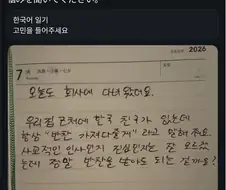 を聞いてください。
한국어 일기
고민을 들어주세요
2026
7
오늘도 회사에 다녀왔어요.
우리집 근처에 한국 친구가 있는데
항상 "반찬 가져다줄게" 라고 말해 줘요.
사교적인 인사인지 진심인지는 잘 모르겠
는데 정말 반찬을 받아도 되는 걸까요?